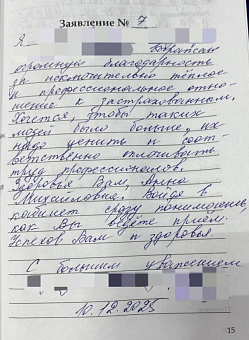 Заявление № 7
Я
Выражаю
огромную благодарность
за исключительно тёплое
и профессиональное отно-
шение к застрахованным.
Хочется, чтобы таких
людей было больше, их
надо ценить и соот-
ветственно оплачивать
труд профессионалов,
Здоровья Вам, Анна
Михайловна. Войдя в
кабинет сразу понимаешь,
как Вы ведёте приём.
Успехов Вам и здоровья.
С большим уважением
10.12.2025
15